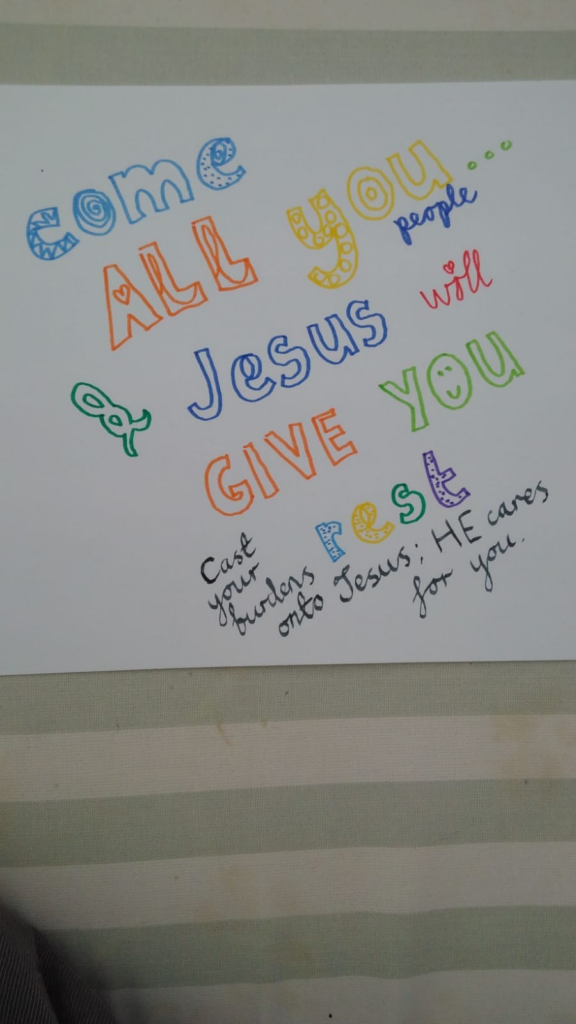 come
ALL you...
people
& Jesus will
GIVE YOU
rest
Cast
your
burdens
onto Jesus; HE cares
for you.